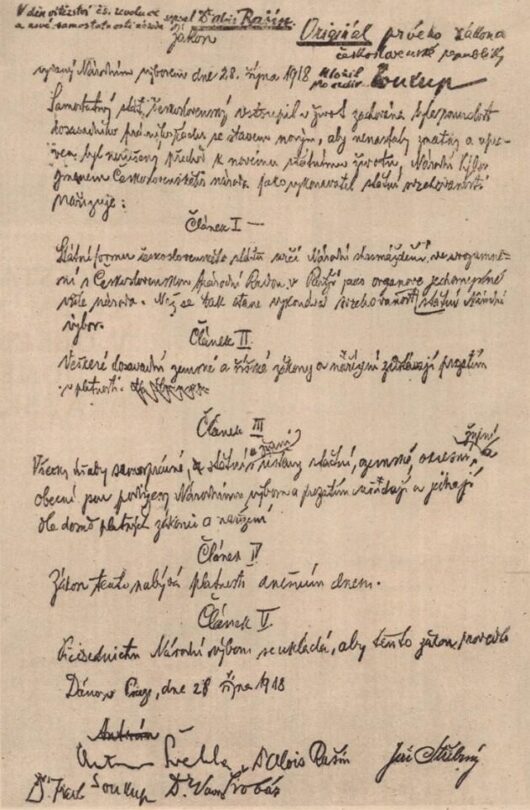 V den vítězství čs. revoluce
a nové samostatnosti národa
sepsal Dr Alois Rašín.
Originál prvého zákona
zákon
československé republiky
vydaný Národním výborem dne 28. října 1918
Uložil
Soukup
Samostatný stát československý vstoupil v život zachována byla souvislost
dosavadního právního řádu se stavem novým, aby nenastaly zmatky a upra-
ven byl nerušený přechod k novému státnímu životu, Národní výbor
jménem Československého národa jako vykonavatel státní svrchovanosti
nařizuje:
Článek I —
Státní formu československého státu určí Národní shromáždění ve srozumě-
ní s Československou Národní Radou v Paříži jako orgánové jednomyslné
vůle národa. Než se tak stane vykonává svrchovanost státní Národní
výbor.
Článek II.
Veškeré dosavadní zemské a říšské zákony a nařízení zůstávají prozatím
v platnosti.
Článek III
Všecky úřady samosprávné, státní a župní, ústavy státní, zemské, okresní, a
obecní jsou podřízeny Národnímu výboru a prozatím úřadují a jednají
dle dosud platných zákonů a nařízení
Článek IV
Zákon tento nabývá platnosti dnešním dnem.
Článek V.
Předsednictvu Národní výboru se ukládá, aby tento zákon provedlo
Dáno v Praze, dne 28 října 1918
Antonín
Antonín Švehla, Dr Alois Rašín Jiří Stříbrný
Dr. Frant Soukup Dr. Vavro Šrobár